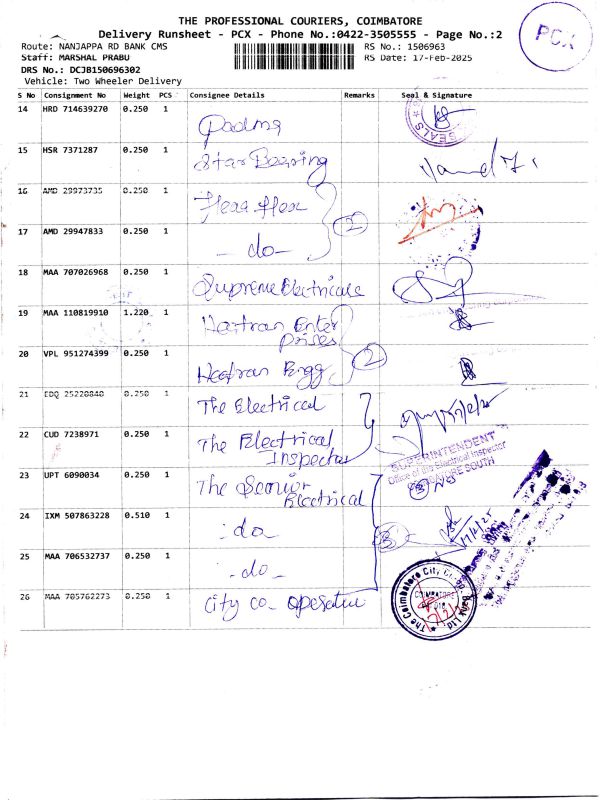 THE PROFESSIONAL COURIERS, COIMBATORE
Delivery Runsheet - PCX - Phone No.:0422-3505555 - Page No.:2
PCX
Route: NANJAPPA RD BANK CMS RS No.: 1506963
Staff: MARSHAL PRABU RS Date: 17-Feb-2025
DRS No.: DCJB150696302
Vehicle: Two Wheeler Delivery
S No Consignment No Weight PCS Consignee Details Remarks Seal & Signature
14 HRD 714639270 0.250 1 Padma
SEALS
15 HSR 7371287 0.250 1 Star Bearing
16 AMD 29973735 0.250 1
2
17 AMD 29947833 0.250 1 -do-
18 MAA 707026968 0.250 1 Supreme Electricals
19 MAA 110819910 1.220 1 Hartran Enter
prises
2
20 VPL 951274399 0.250 1 Engg
21 EDQ 25220840 0.250 1 The Electrical
22 CUD 7238971 0.250 1 The Electrical
Inspector
SUPERINTENDENT
Office of the Electrical Inspector
COIMBATORE SOUTH
23 UPT 6090034 0.250 1 The Senior
Electrical
24 IXM 507863228 0.510 1 -do-
3
17/2/25
25 MAA 706532737 0.250 1 -do-
26 MAA 705762273 0.250 1 City co-operative
The Coimbatore City Co-op. Bank Ltd.
COIMBATORE